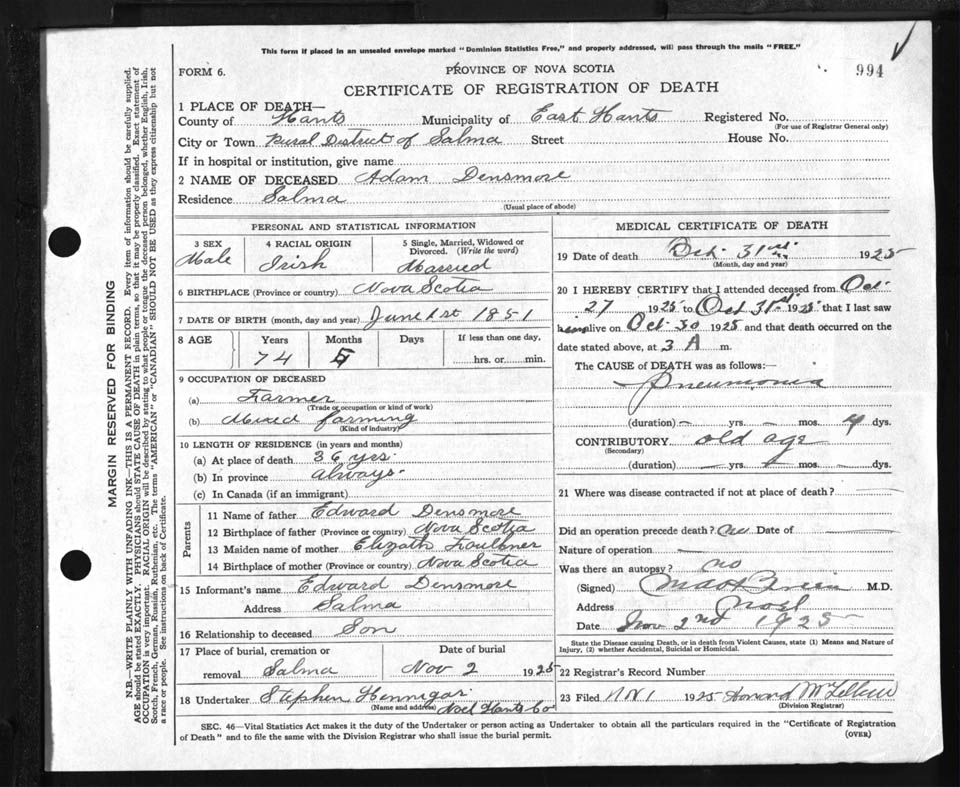 This form if placed in an unsealed envelope marked "Dominion Statistics Free," and properly addressed, will pass through the mails "FREE."
FORM 6.
PROVINCE OF NOVA SCOTIA
994
CERTIFICATE OF REGISTRATION OF DEATH
1 PLACE OF DEATH—
County of Hants Municipality of East Hants Registered No.
(For use of Registrar General only)
City or Town Rural District of Selma Street House No.
If in hospital or institution, give name
2 NAME OF DECEASED Adam Densmore
Residence Selma
(Usual place of abode)
PERSONAL AND STATISTICAL INFORMATION
3 SEX 4 RACIAL ORIGIN 5 Single, Married, Widowed or Divorced. (Write the word)
Male Irish Married
6 BIRTHPLACE (Province or country) Nova Scotia
7 DATE OF BIRTH (month, day and year) June 1st 1851
8 AGE Years Months Days If less than one day,
74 hrs. or min.
9 OCCUPATION OF DECEASED
(a) Farmer
(Trade or occupation or kind of work)
(b) Mixed farming
(Kind of industry)
10 LENGTH OF RESIDENCE (in years and months)
(a) At place of death 36 yrs.
(b) In province always.
(c) In Canada (if an immigrant)
Parents
11 Name of father Edward Densmore
12 Birthplace of father (Province or country) Nova Scotia
13 Maiden name of mother Elizath Faulkner
14 Birthplace of mother (Province or country) Nova Scotia
15 Informant's name Edward Densmore
Address Selma
16 Relationship to deceased Son
17 Place of burial, cremation or Date of burial
removal Selma Nov 2 1925
18 Undertaker Stephen Hennigar
(Name and address) Noel Hants Co
MEDICAL CERTIFICATE OF DEATH
19 Date of death Oct 31st 1925
(Month, day and year)
20 I HEREBY CERTIFY that I attended deceased from Oct
27 1925 to Oct 31st 1925 that I last saw
him alive on Oct 30 1925 and that death occurred on
date stated above, at 3 A m.
The CAUSE of DEATH was as follows:—
Pneumonia
(duration) — yrs. — mos. 4 dys.
CONTRIBUTORY old age
(Secondary)
(duration) — yrs. — mos. — dys.
21 Where was disease contracted if not at place of death?
Did an operation precede death? no Date of —
Nature of operation —
Was there an autopsy? no
(Signed) M.D.
Address Noel
Date Nov 2nd 1925
State the Disease causing Death, or in death from Violent Causes, state (1) Means and Nature of Injury, (2) whether Accidental, Suicidal or Homicidal.
22 Registrar's Record Number
23 Filed 1925 Howard
(Division Registrar)
SEC. 46—Vital Statistics Act makes it the duty of the Undertaker or person acting as Undertaker to obtain all the particulars required in the "Certificate of Registration
of Death" and to file the same with the Division Registrar who shall issue the burial permit. (OVER)
MARGIN RESERVED FOR BINDING
N.B.—WRITE PLAINLY WITH UNFADING INK—THIS IS A PERMANENT RECORD. Every item of information should be carefully supplied.
AGE should be stated EXACTLY. PHYSICIANS should STATE CAUSE OF DEATH in plain terms, so that it may be properly classified. Exact statement of
OCCUPATION is very important. RACIAL ORIGIN will be described by stating to what people or tongue the deceased person belonged, whether English, Irish,
Scotch, French, German, Russian, Ruthenian, etc. The terms "AMERICAN" or "CANADIAN" SHOULD NOT BE USED as they express citizenship but not
a race or people. See instructions on back of Certificate.